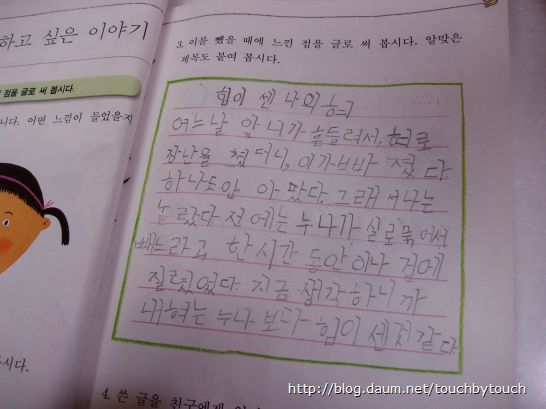 하고 싶은 이야기
점을 글로 써 봅시다.
니다. 어떤 느낌이 들었을지
3. 이를 뺐을 때에 느낀 점을 글로 써 봅시다. 알맞은
제목도 붙여 봅시다.
힘이 쎈 나의 혀
여느날 앞니가 흔들려서, 혀로
장난을 쳤더니, 이가 빠졌다
하나도 안 아팠다. 그래서 나는
놀랐다 전에는 누나가 실로 묶어서
빼느라고 한시간 동안이나 겁에
질렸었다. 지금 생각하니까
내 혀는 누나보다 힘이 센것 같다
시다.
4. 쓴 글을 친구에게
http://blog.daum.net/touchbytouch